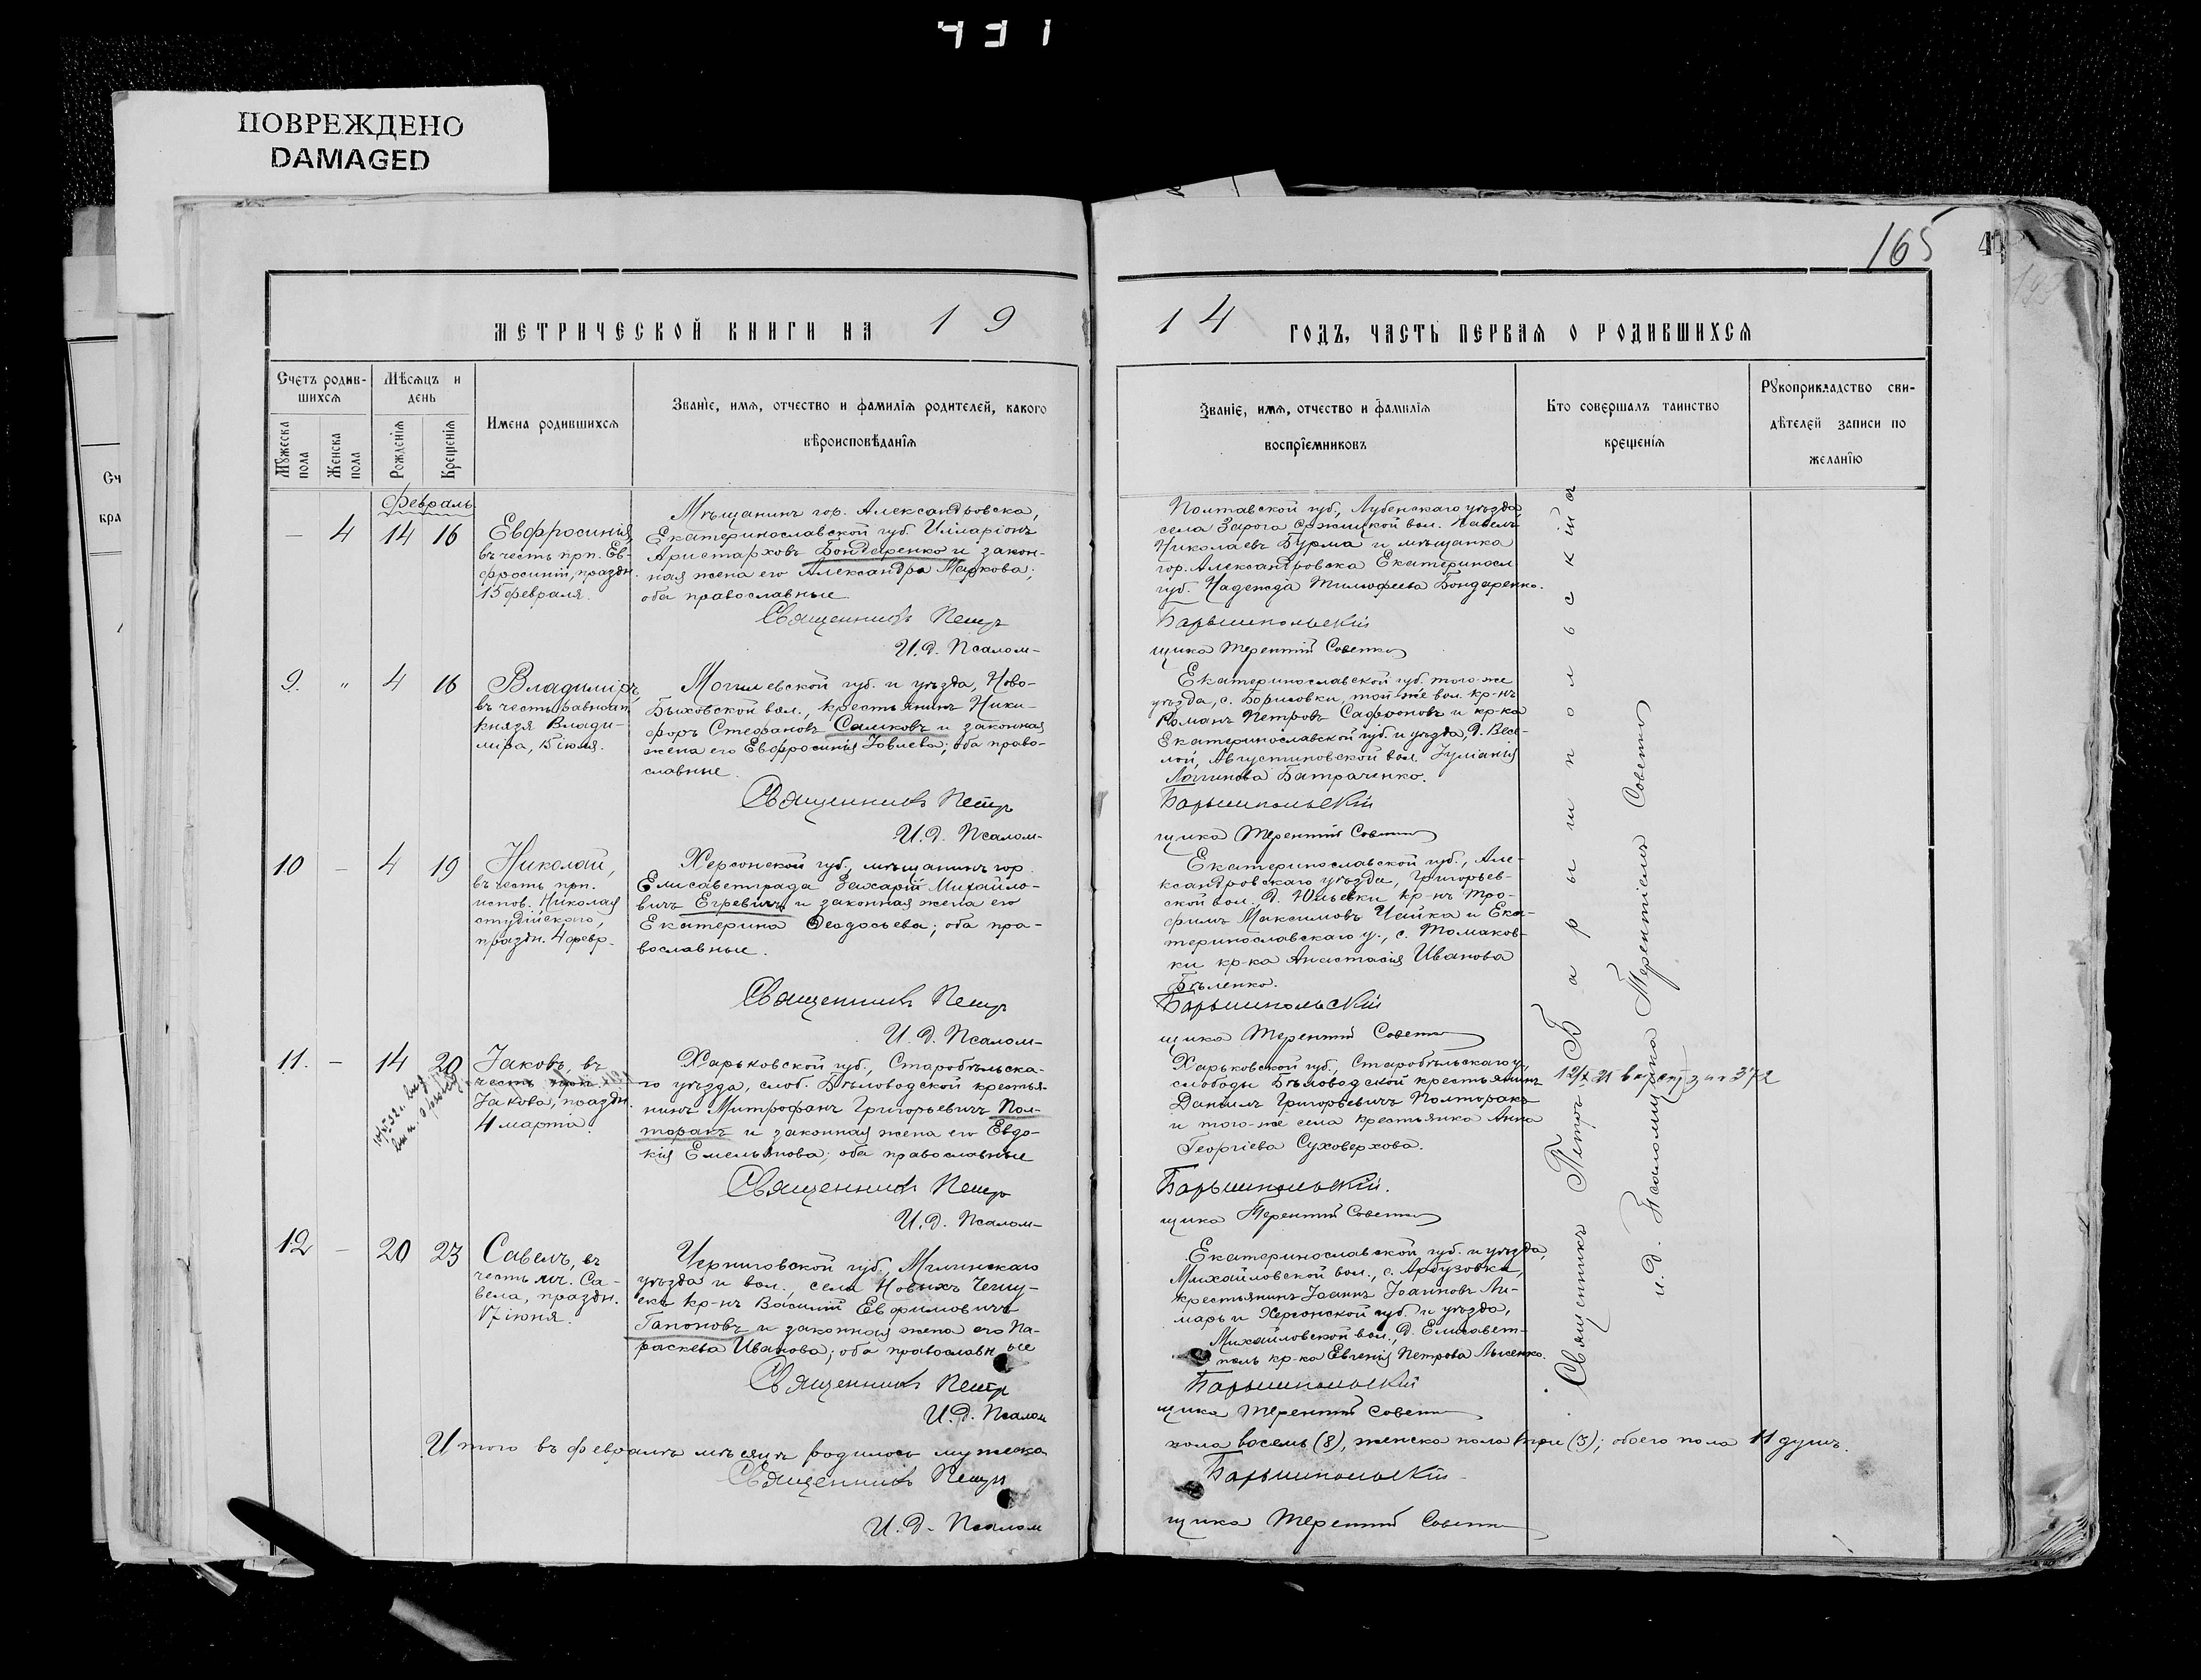 431
ПОВРЕЖДЕНО
DAMAGED
165
МЕТРИЧЕСКОЙ КНИГИ НА 19
14 ГОДЪ, ЧАСТЬ ПЕРВАЯ О РОДИВШИХСЯ
Счетъ родив-
шихся
Мѣсяцъ и
день
Мужеска
пола
Женска
пола
Рожденія
Крещенія
Имена родившихся
Званіе, имя, отчество и фамилія родителей, какого
вѣроисповѣданія
Званіе, имя, отчество и фамилія
воспріемниковъ
Кто совершалъ таинство
крещенія
Рукоприкладство сви-
дѣтелей записи по
желанію
Февраль
— 4 14 16
Евфросинія,
въ честь прп. Ев-
фросиніи, праздн.
15 февраля.
Мѣщанинъ гор. Александровска,
Екатеринославской губ. Илларіонъ
Аристарховъ Бондаренко и закон-
ная жена его Александра Маркова;
оба православные
Священникъ Петръ
И. д. Псалом-
Полтавской губ., Лубенскаго уѣзда,
села Зарога вол. Павелъ
Николаевъ Бурма и мѣщанка
гор. Александровска Екатериносл.
губ. Надежда Тимофеева Бондаренко.
Барышпольскій
щика Терентій Советъ
9. " 4 16
Владиміръ,
въ честь равноап.
князя Влади-
мира, 15 іюля.
Могилевской губ. и уѣзда, Ново-
Быховской вол., крестьянинъ Ники-
форъ Стефановъ Самковъ и законная
жена его Евфросинія Іовлева; оба право-
славные.
Священникъ Петръ
И. д. Псалом-
Екатеринославской губ. того-же
уѣзда, с. Борисовки, той-же вол. кр-нъ
Романъ Петровъ Сафоновъ и кр-ка
Екатеринославской губ. и уѣзда, д. Весе-
лой, Августиновской вол. Іуліанія
Логгинова Батраченко.
Барышпольскій
щика Терентій Советъ
10 — 4 19
Николай,
въ честь прп.
испов. Николая
студійскаго,
праздн. 4 февр.
Херсонской губ., мѣщанинъ гор.
Елисаветграда Захарій Михайло-
вичъ Егревичъ и законная жена его
Екатерина Ѳеодосьева; оба пра-
вославные.
Священникъ Петръ
И. д. Псалом-
Екатеринославской губ., Але-
ксандровскаго уѣзда, Григорьев-
ской вол. д. Юльевки кр-нъ Тро-
фимъ Максимовъ Чайка и Ека-
теринославскаго у., с. Томаков-
ки кр-ка Анастасія Иванова
Бѣленко.
Барышпольскій
щика Терентій Советъ
11. — 14 20
Іаковъ, въ
честь
Іакова, праздн.
4 марта.
Харьковской губ., Старобѣльска-
го уѣзда, слоб. Бѣловодской крестья-
нинъ Митрофанъ Григорьевичъ Пол-
торакъ и законная жена его Евдо-
кія Емельянова; оба православные
Священникъ Петръ
И. д. Псалом-
Харьковской губ., Старобѣльскаго у.,
слободы Бѣловодской крестьянинъ
Даніилъ Григорьевичъ Полторакъ
и того-же села крестьянка Анна
Георгіева Суховерхова.
Барышпольскій.
щика Терентій Советъ
372
12 — 20 23
Савелъ, въ
честь мч. Са-
вела, праздн.
17 іюня.
Черниговской губ., Мглинскаго
уѣзда и вол., села Новыхъ
кр-нъ Василій Евфимовичъ
Гапоновъ и законная жена его Па-
раскева Иванова; оба православные
Священникъ Петръ
И. д. Псалом
Екатеринославской губ. и уѣзда,
Михайловской вол., с. Арбузовки,
крестьянинъ Іоаннъ Іоанновъ Ли-
марь и Херсонской губ. и уѣзда,
Михайловской вол., д. Елисавет-
поль кр-ка Евгенія Петрова Лысенко.
Барышпольскій
щика Терентій Советъ
Священникъ Петръ Барышпольскій
и. д. Псаломщика Терентій Советъ
Итого въ февралѣ мѣсяцѣ родилось мужеска
пола восемь (8), женска пола три (3); обоего пола 11 душъ.
Священникъ Петръ
Барышпольскій
И. д. Псалом
щика Терентій Советъ